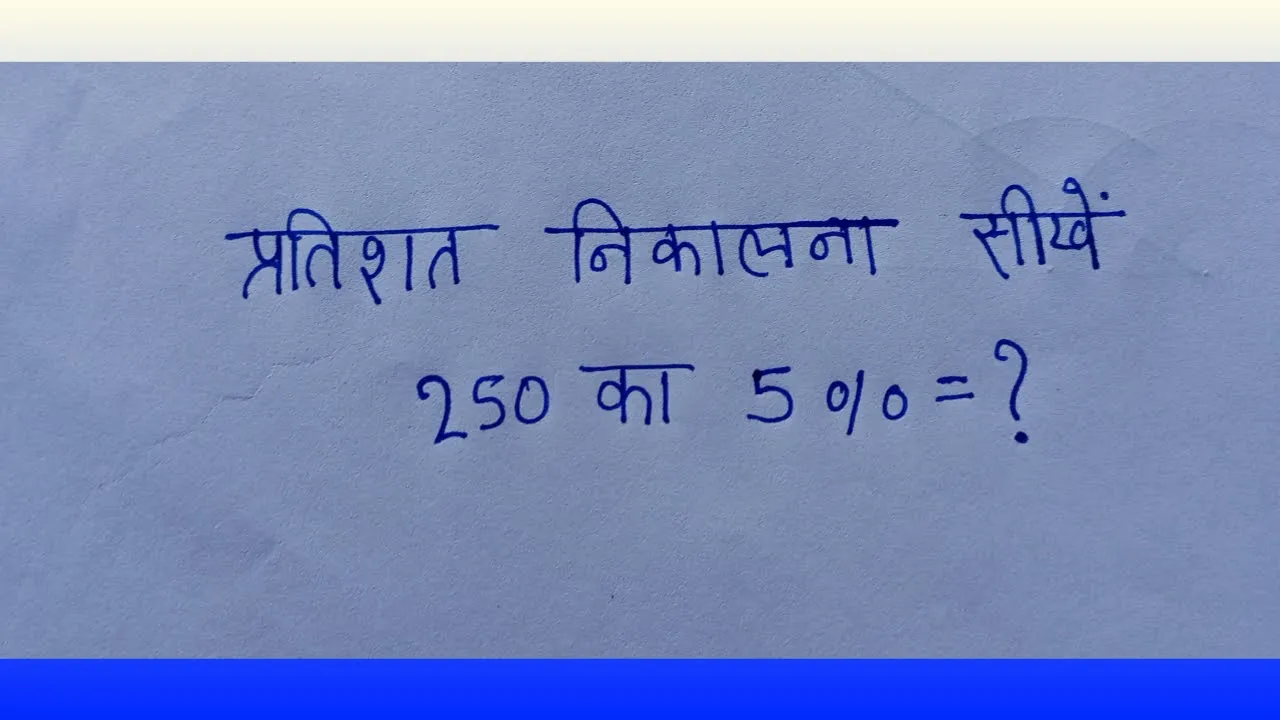 प्रतिशत निकालना सीखें
250 का 5% = ?